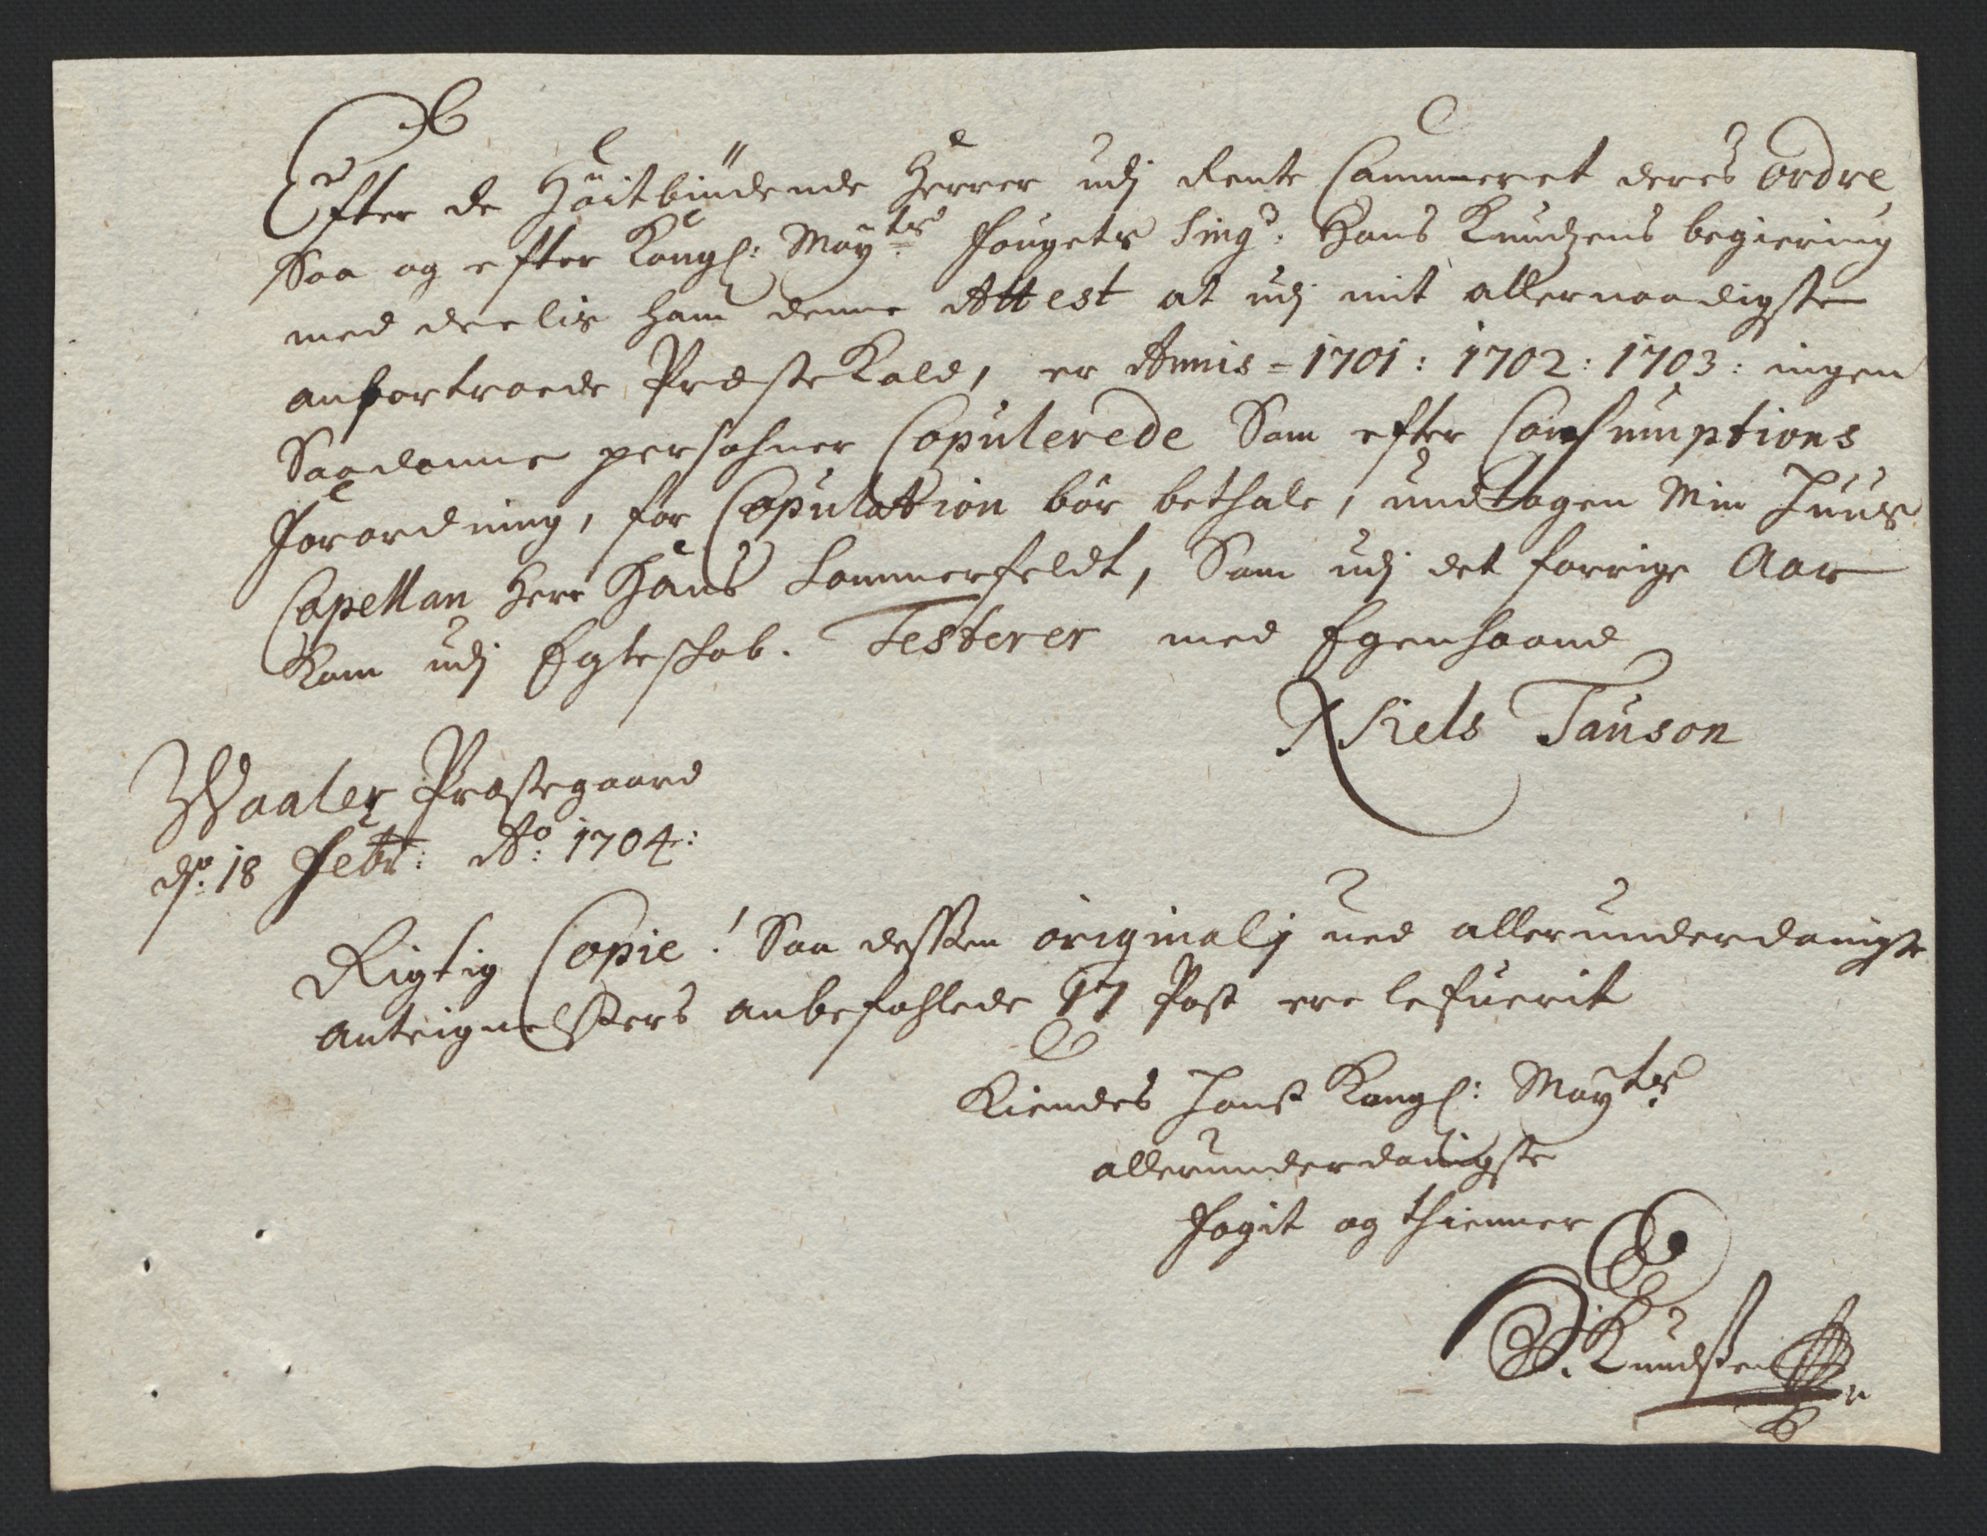 Efter de Höitbiudende Herrer udj Rente Cammeret deres Ordre,
Saa og efter Kongl: Mayts Fougets Sing: Hans Knudzens begiering
meddeelis ham denne Attest at udj mit allernaadigste
anfortroede Præste Kald, er Annis = 1701: 1702: 1703: ingen
Saadanne persohner Copulerede Som efter Consumptions
Forordning, for Copulation bör bethale, undtagen Min Huus
Capellan Herr Hans Sommerfeldt, Som udj det forrige Aar
Kom udj Egteskab. Testerer med Egenhaand
Niels Tauson
Waaler Præstegaard
d: 18 Febr: Ao: 1704:
Rigtig Copie! Saa dessen originalj ved allerunderdanigste
Antegnelssers anbefahlede 17 Post ere lefuerit
Kiendes Hans Kongl: Mayts
allerunderdanigste
Fogit og thienner
H. Knudssen